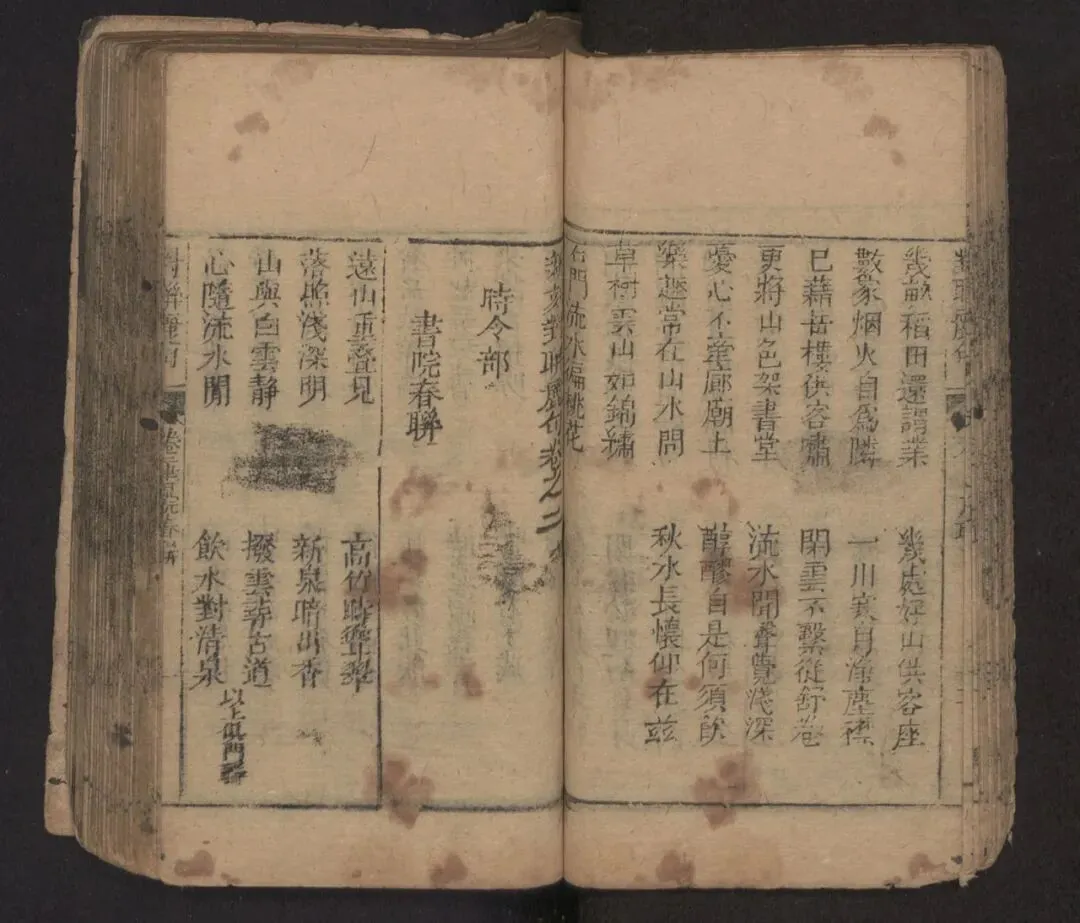 幾畝稻田還謂業
幾處好山供客座
數家烟火自爲隣
一川寒月淨塵襟
已藉岳樓供客嘯
閑雲不繫從舒卷
更將山色架書堂
流水聞聲覺淺深
憂心不廊廟上
醇醪自是何須飲
樂趣常在山水間
秋水長懷仰在茲
草樹雲山如錦繡
石門流水徧桃花
對聯麗句卷之二
時令部
書院春聯
遠山重疊見
高竹時聳翠
落照淺深明
新泉暗出香
山與白雲靜
撥雲尋古道
心隨流水閒
飲水對清泉
以上俱門